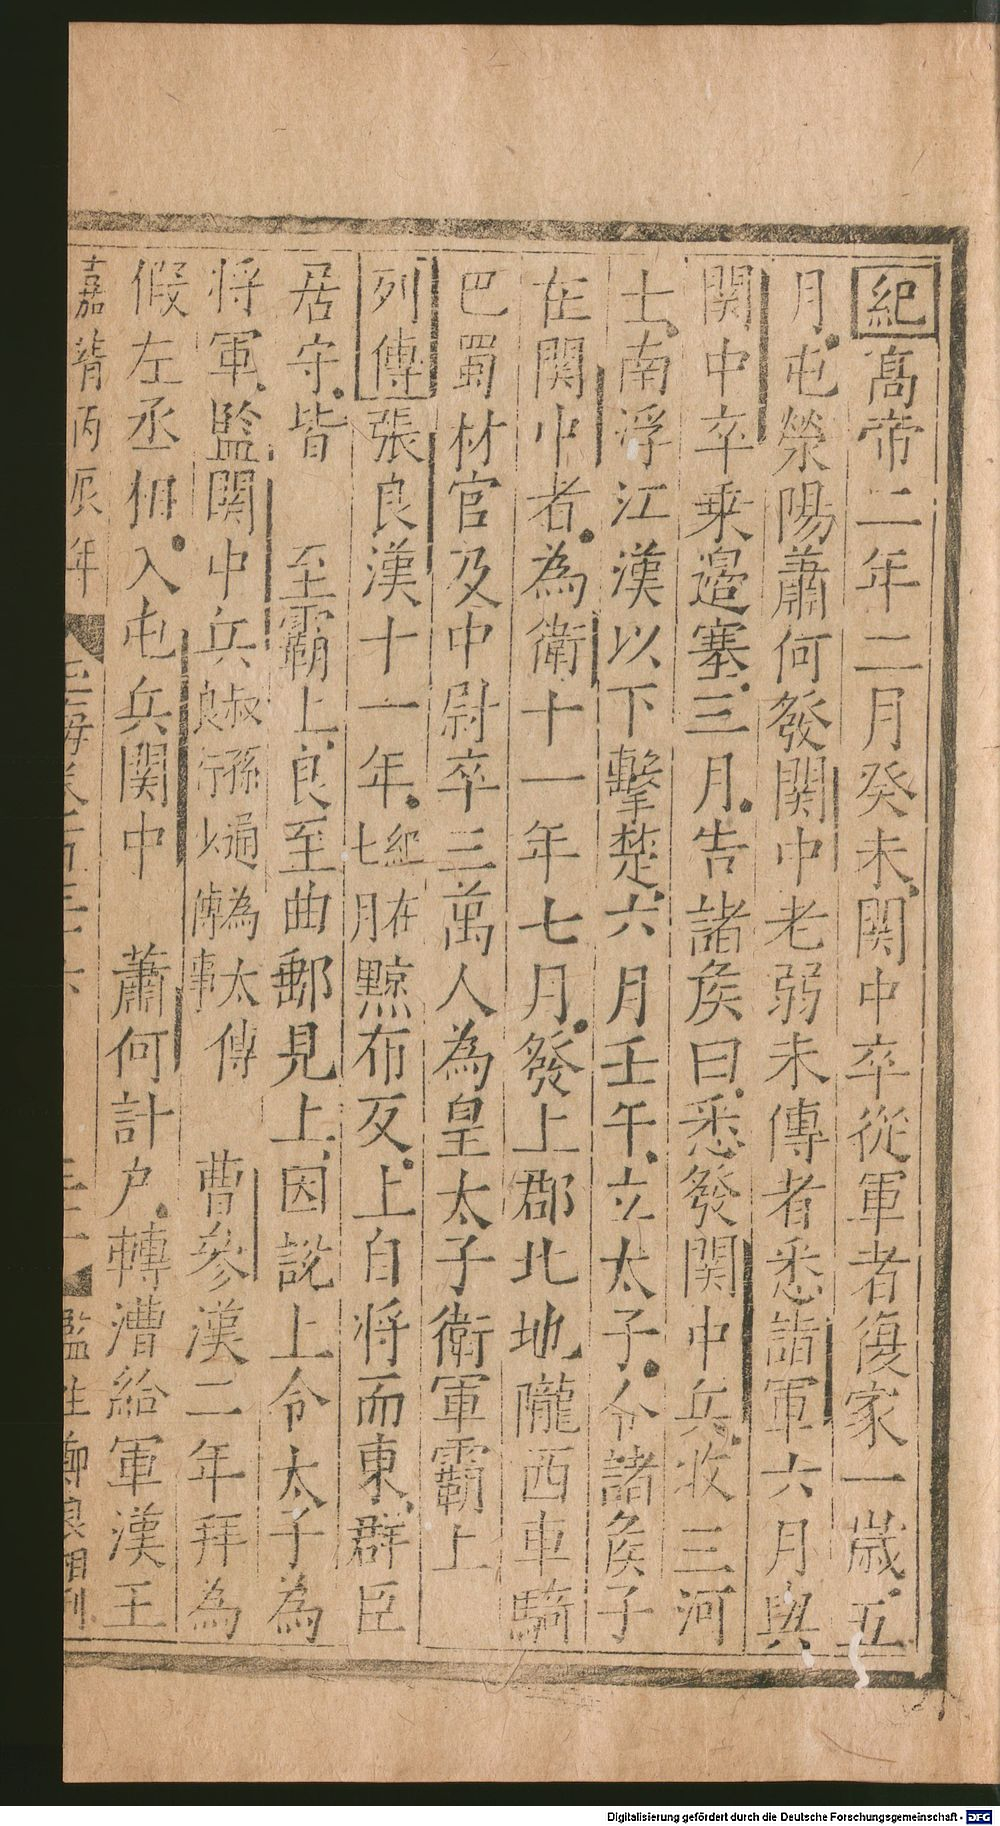 紀高帝二年二月癸未關中卒從軍者復家一歲五
月屯滎陽蕭何發關中老弱未傅者悉詣軍六月與
關中卒乗邉塞三月告諸矦曰悉發關中兵收三河
士南浮江漢以下擊楚六月壬午立太子令諸矦子
在關中者為衛十一年七月發上郡北地隴西車騎
巴蜀材官及中尉卒三萬人為皇太子衛軍霸上
列傳張良漢十一年紀在七月黥布反上自将而東群臣
居守皆 至霸上良至曲郵見上因説上令太子為
将軍監關中兵叔孫通為太傅良行少傅事 曹參漢二年拜為
假左丞相入屯兵關中 蕭何計户轉漕給軍漢王
嘉靖丙辰年 玉海卷 監生 刊
Digitalisierung gefördert durch die Deutsche Forschungsgemeinschaft - DFG